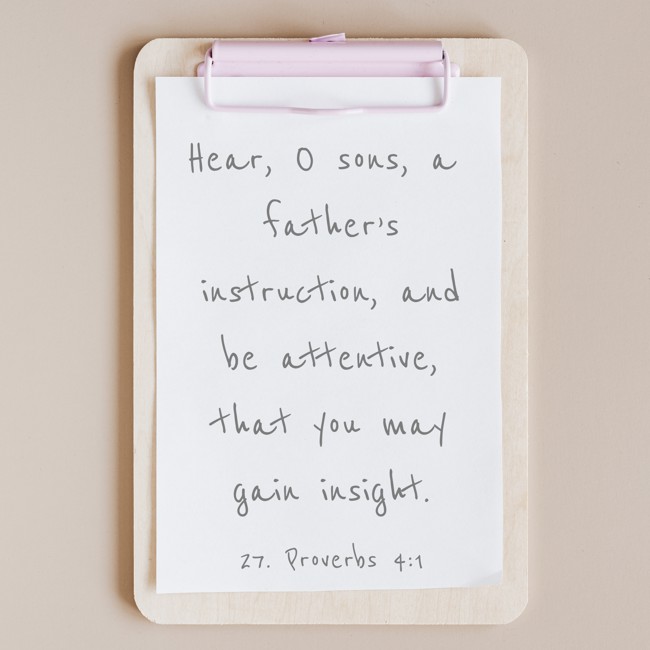 Hear, O sons, a
father's
instruction, and
be attentive,
that you may
gain insight.
27. Proverbs 4:1